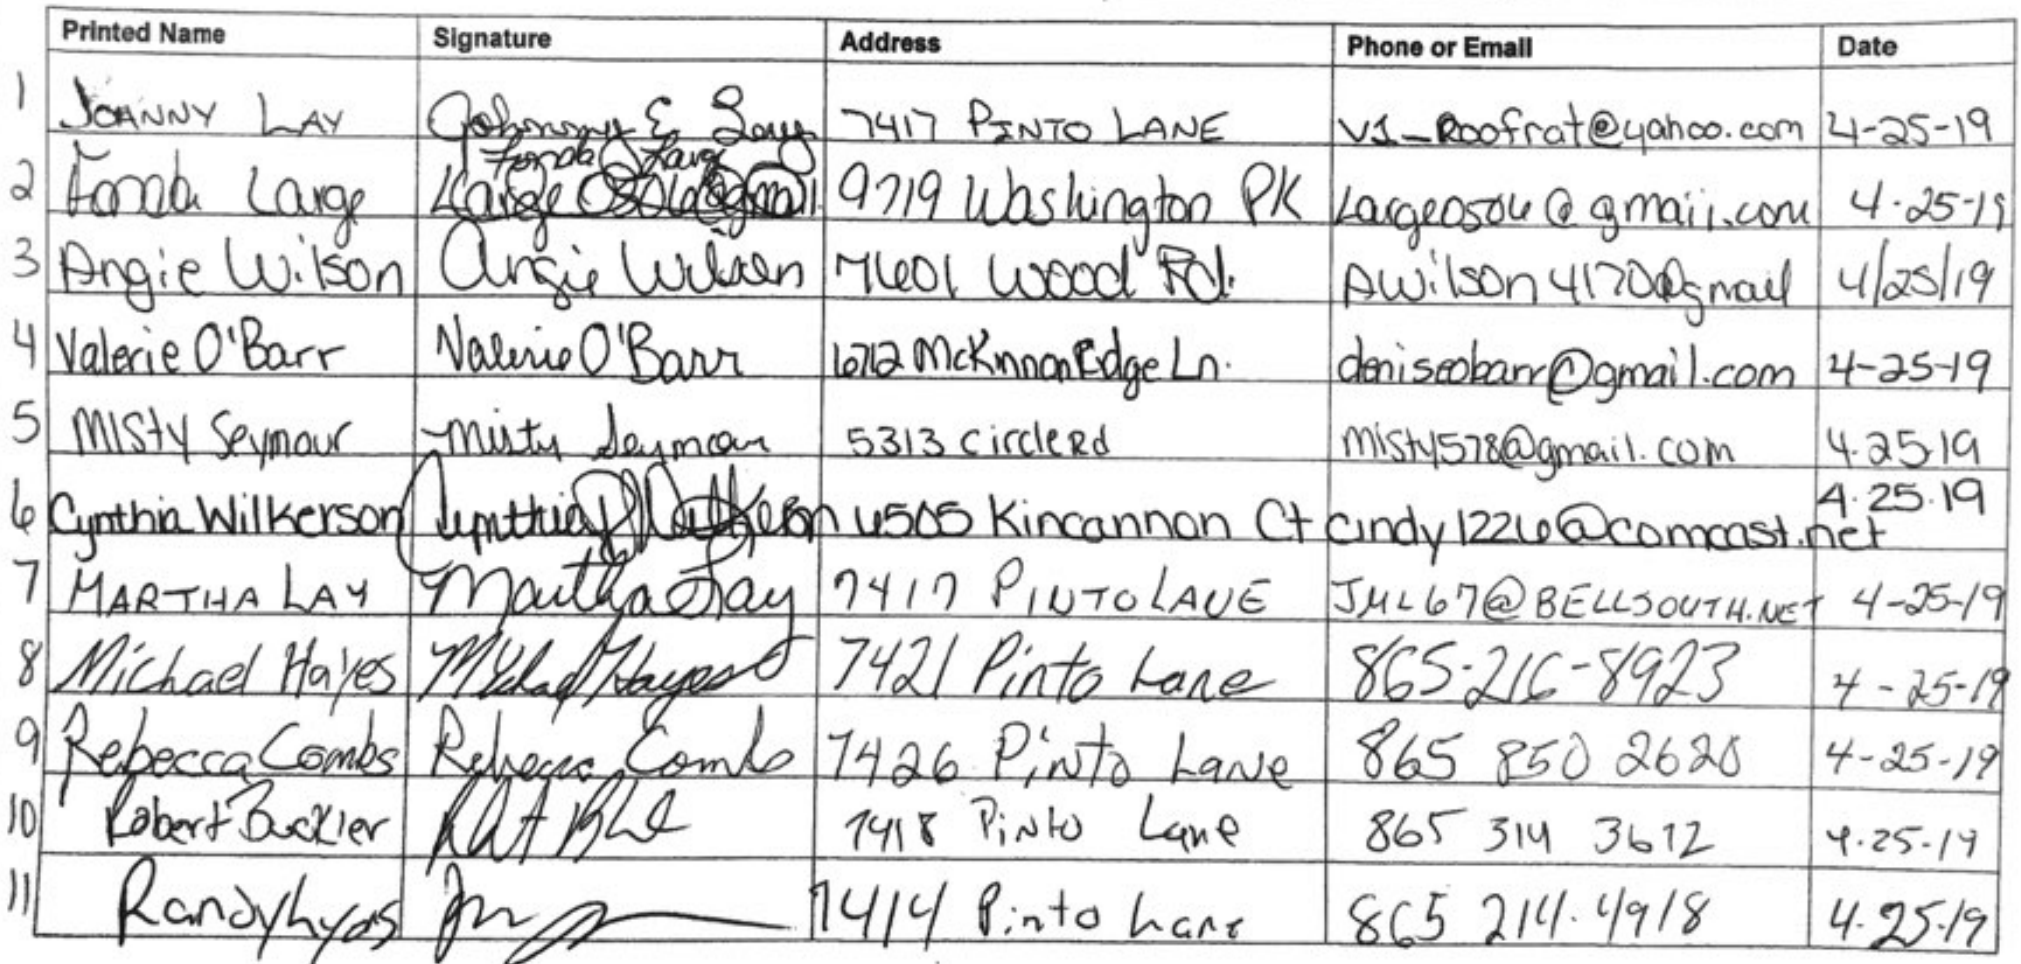 Printed Name Signature Address Phone or Email Date
1 JOHNNY LAY Johnny E Lay 7417 PINTO LANE V1_Roofrat@yahoo.com 4-25-19
Fonda Large
2 Fonda Large 9719 Washington PK Large0506@gmail.com 4-25-19
3 Angie Wilson Angie Wilson 7601 Wood Rd. AWilson4170@gmail 4/25/19
4 Valerie O'Barr Valerie O'Barr 6712 McKinnon Ridge Ln. deniseobarr@gmail.com 4-25-19
5 Misty Seymour Misty Seymour 5313 Circle Rd misty578@gmail.com 4.25.19
6 Cynthia Wilkerson Cynthia Wilkerson 6505 Kincannon Ct cindy1226@comcast.net 4.25.19
7 MARTHA LAY Martha Lay 7417 PINTO LANE JML67@BELLSOUTH.NET 4-25-19
8 Michael Hayes Michael Hayes 7421 Pinto Lane 865-216-8923 4-25-19
9 Rebecca Combs Rebecca Combs 7426 Pinto Lane 865 850 2620 4-25-19
10 Robert Buckler 7418 Pinto Lane 865 314 3672 4-25-19
11 Randy 7414 Pinto Lane 865 214-4918 4-25-19